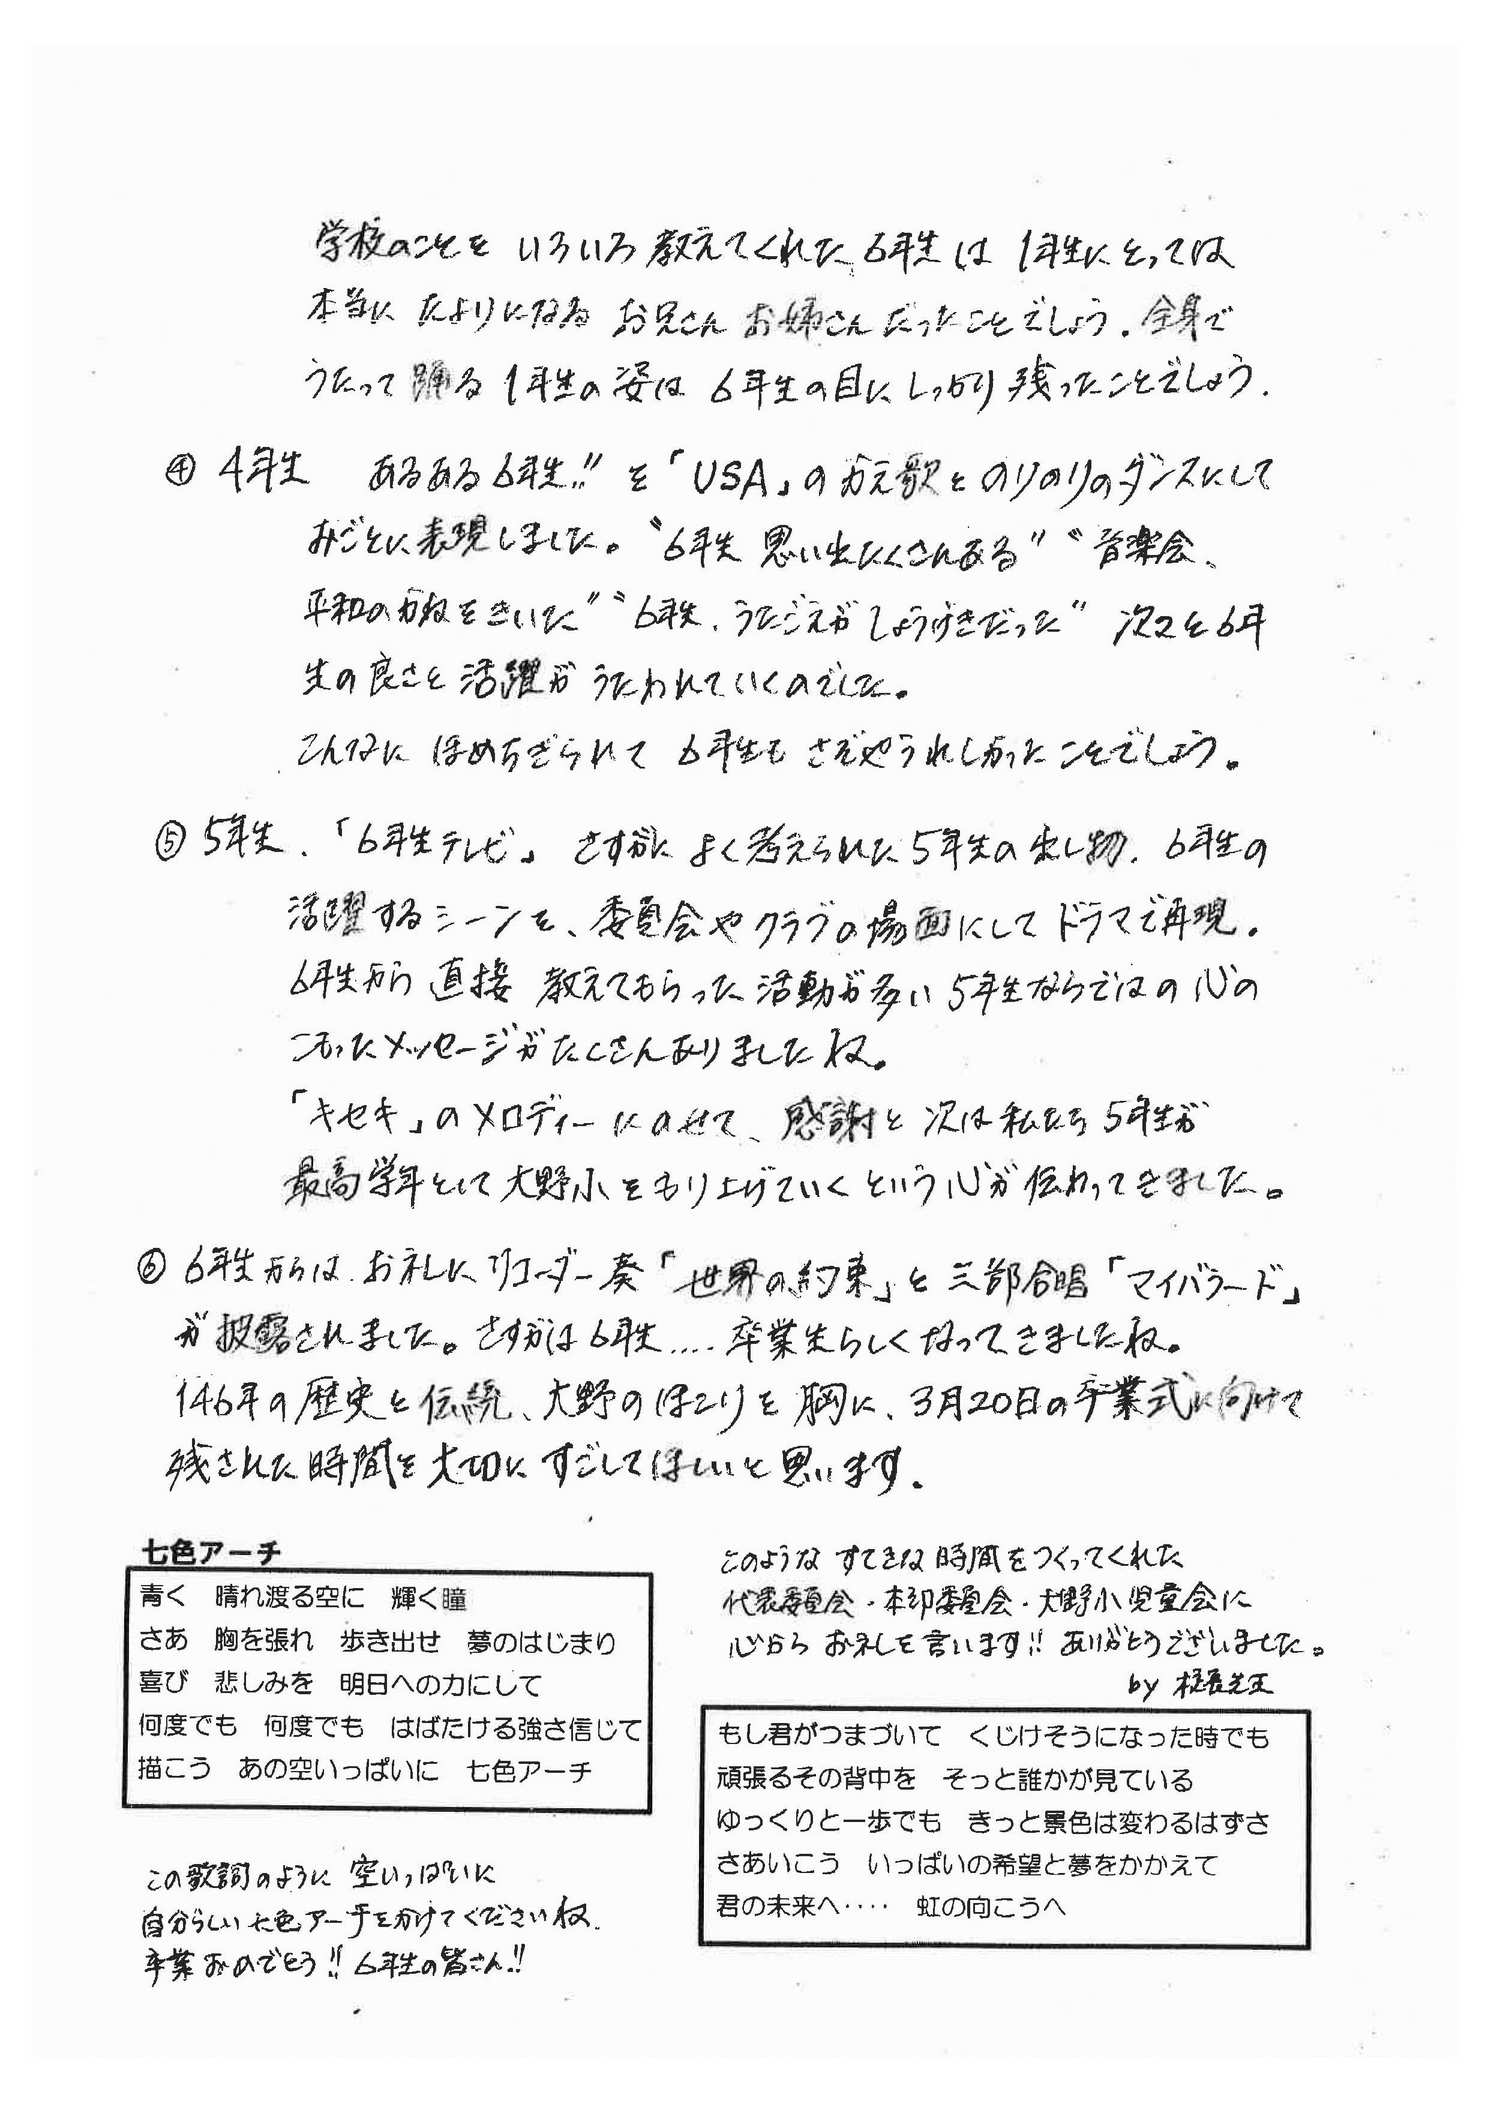 学校のことを いろいろ教えてくれた 6年生は 1年生にとっては
本当に たよりになる お兄さん お姉さんだったことでしょう。全身で
うたって踊る 1年生の姿は 6年生の目にしっかり残ったことでしょう。
④ 4年生 あるある6年生!! を「USA」のかえ歌とのりのりのダンスにして
みごとに表現しました。〝6年生 思い出たくさんある〟〝音楽会、
平和のかねをきいた〟〝6年生、うたごえがしょうげきだった〟 次々と6年
生の良さと活躍がうたわれていくのでした。
こんなに ほめちぎられて 6年生も さぞやうれしかったことでしょう。
⑤ 5年生、「6年生テレビ」 さすがに よく考えられた5年生の出し物。6年生の
活躍するシーンを、委員会やクラブの場面にして ドラマで再現。
6年生から 直接 教えてもらった活動が多い 5年生ならではの心の
こもったメッセージがたくさんありましたね。
「キセキ」のメロディーにのせて、感謝と 次は私たち 5年生が
最高学年として大野小をもり上げていくという心が伝わってきました。
⑥ 6年生からは、お礼にリコーダー奏「世界の約束」と三部合唱「マイバラード」
が披露されました。さすがは6年生…. 卒業生らしくなってきましたね。
146年の歴史と伝統、大野のほこりを胸に、3月20日の卒業式に向けて
残された時間を大切にすごしてほしいと思います。
七色アーチ
青く 晴れ渡る空に 輝く瞳
さあ 胸を張れ 歩き出せ 夢のはじまり
喜び 悲しみを 明日への力にして
何度でも 何度でも はばたける強さ信じて
描こう あの空いっぱいに 七色アーチ
この歌詞のように 空いっぱいに
自分らしい七色アーチをかけてくださいね。
卒業おめでとう!! 6年生の皆さん!!
このような すてきな時間をつくってくれた
代表委員会・本部委員会・大野小児童会に
心から お礼を言います!! ありがとうございました。
by 校長先生
もし君がつまづいて くじけそうになった時でも
頑張るその背中を そっと誰かが見ている
ゆっくりと一歩でも きっと景色は変わるはずさ
さあいこう いっぱいの希望と夢をかかえて
君の未来へ‥‥ 虹の向こうへ